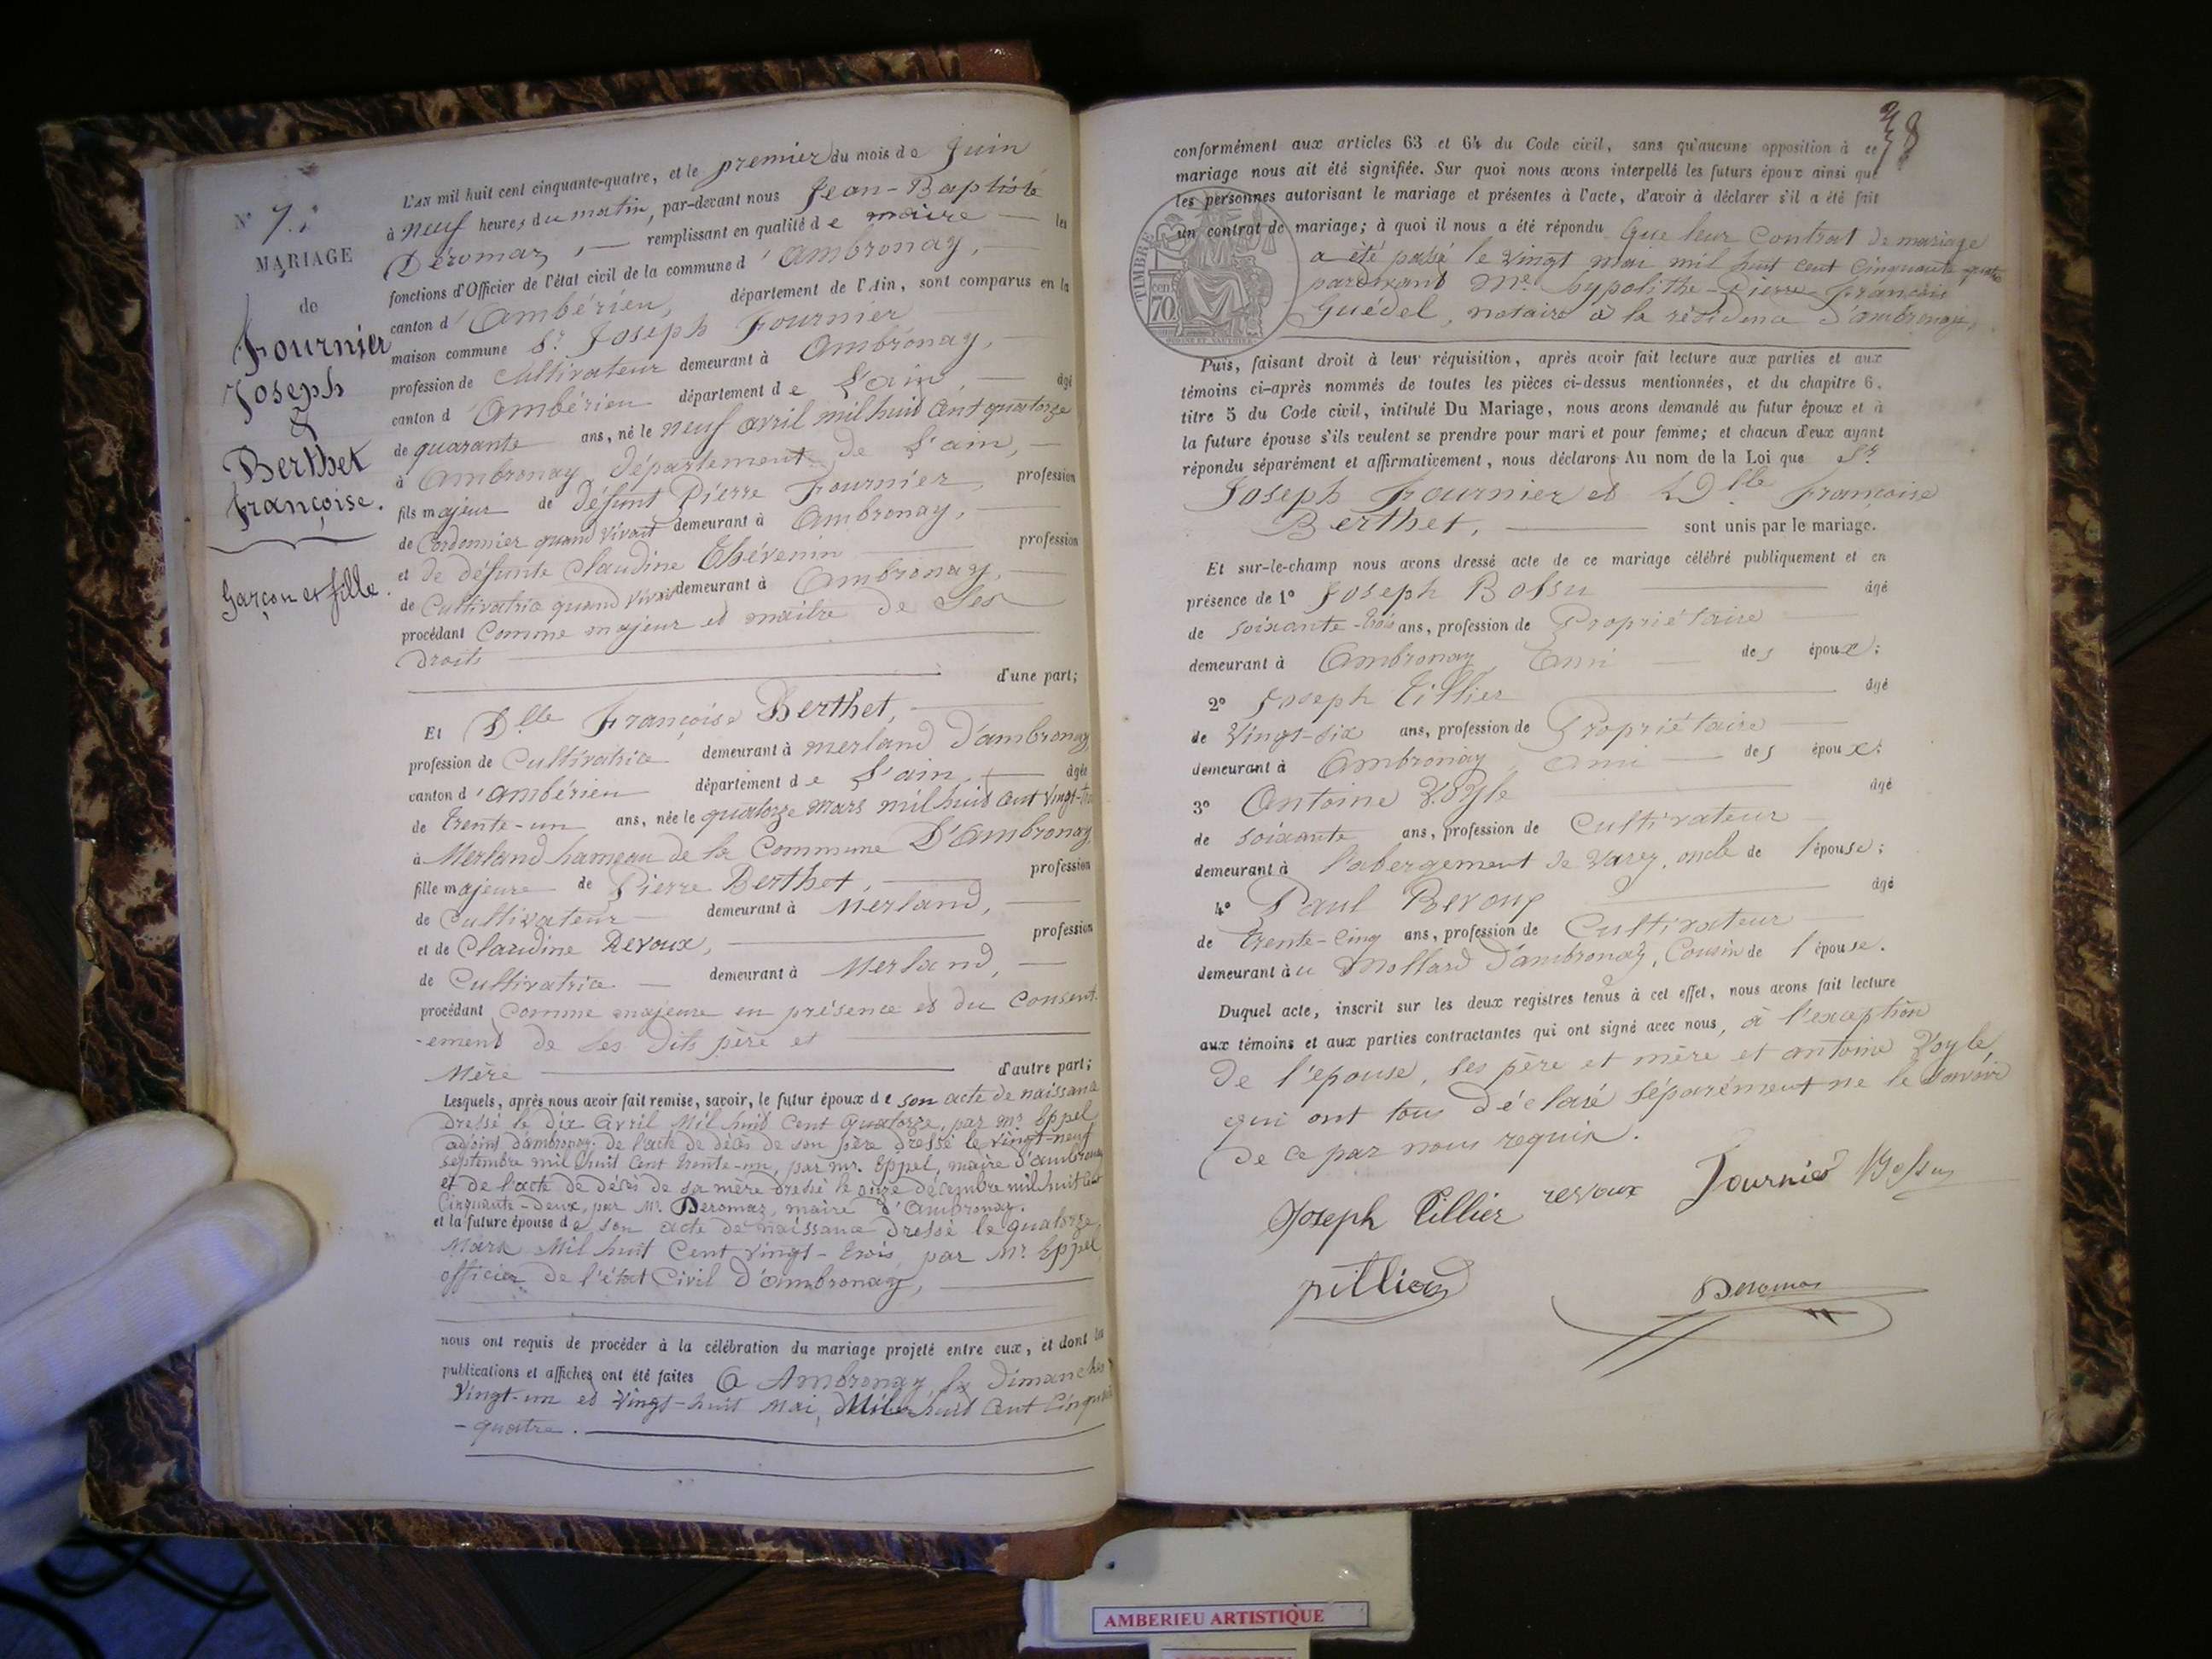 N° 7.
MARIAGE
de
Fournier
Joseph
&
Berthet
françoise.
Garçon et fille.
L'AN mil huit cent cinquante-quatre, et le premier du mois de Juin
à neuf heures du matin, par-devant nous Jean-Baptiste
Déromas, remplissant en qualité de maire les
fonctions d'Officier de l'état civil de la commune d'Ambronay,
canton d'Ambérieu, département de l'Ain, sont comparus en la
maison commune Sr. Joseph Fournier
profession de Cultivateur demeurant à Ambronay,
canton d'Ambérieu département de L'ain, âgé
de quarante ans, né le neuf avril mil huit cent quatorze
à Ambronay département de L'ain,
fils majeur de défunt Pierre Fournier profession
de Cordonnier quand vivait demeurant à Ambronay,
et de défunte Claudine Thévenin profession
de Cultivatrice quand vivait demeurant à Ambronay,
procédant Comme majeur et maitre de Ses
droits
d'une part;
Et Dlle Françoise Berthet,
profession de Cultivatrice demeurant à merland d'ambronay
canton d'ambérieu département de L'ain, âgée
de trente-un ans, née le quatorze mars mil huit cent vingt-trois
à Merland hameau de la Commune D'Ambronay,
fille majeure de Pierre Berthet, profession
de Cultivateur demeurant à Merland,
et de Claudine Revoux, profession
de Cultivatrice demeurant à Merland,
procédant Comme majeure en présence et du Consent-
-ement de Ses dits père et
Mère d'autre part;
Lesquels, après nous avoir fait remise, savoir, le futur époux de son acte de naissance
dressé le dix Avril Mil huit Cent Quatorze, par mr. Eppel
adjoint d'ambronay. de l'acte de décès de son père dressé le vingt-neuf
septembre mil huit cent trente-un, par mr. Eppel, maire d'ambronay
et de l'acte de décès de sa mère dressé le onze décembre mil huit Cent
Cinquante-deux, par Mr. Deromas, maire d'Ambronay.
et la future épouse de son acte de naissance dressé le quatorze
Mars Mil huit Cent vingt-trois par Mr. Eppel
officier de l'état Civil d'ambronay,
nous ont requis de procéder à la célébration du mariage projeté entre eux, et dont les
publications et affiches ont été faites à Ambronay les Dimanches
Vingt-un et Vingt-huit Mai, Mil huit Cent Cinquante
-quatre.
38
conformément aux articles 63 et 64 du Code civil, sans qu'aucune opposition à ce
mariage nous ait été signifiée. Sur quoi nous avons interpellé les futurs époux ainsi que
les personnes autorisant le mariage et présentes à l'acte, d'avoir à déclarer s'il a été fait
un contrat de mariage; à quoi il nous a été répondu Que leur Contrat de mariage
a été passé le vingt mai mil huit cent Cinquante quatre
pardevant Me hypolithe-Pierre-françois
Guédel, notaire à la résidence d'ambronay.
TIMBRE
cen
70
Puis, faisant droit à leur réquisition, après avoir fait lecture aux parties et aux
témoins ci-après nommés de toutes les pièces ci-dessus mentionnées, et du chapitre 6,
titre 5 du Code civil, intitulé Du Mariage, nous avons demandé au futur époux et à
la future épouse s'ils veulent se prendre pour mari et pour femme; et chacun d'eux ayant
répondu séparément et affirmativement, nous déclarons Au nom de la Loi que Sr
Joseph Fournier et Dlle Françoise
Berthet, sont unis par le mariage.
Et sur-le-champ nous avons dressé acte de ce mariage célébré publiquement et en
présence de 1° Joseph Bossu âgé
de Soixante-trois ans, profession de Propriétaire
demeurant à Ambronay Ami des époux;
2° Joseph Tillier âgé
de Vingt-six ans, profession de Propriétaire
demeurant à Ambronay, ami des époux;
3° Antoine Voyle âgé
de Soixante ans, profession de Cultivateur
demeurant à l'abergement de Varey, oncle de l'épouse;
4° Paul Revoux âgé
de trente-cinq ans, profession de Cultivateur
demeurant au Mollard d'ambronay, Cousin de l'épouse.
Duquel acte, inscrit sur les deux registres tenus à cet effet, nous avons fait lecture
aux témoins et aux parties contractantes qui ont signé avec nous, à l'exception
de l'épouse, ses père et mère et antoine Voyle
qui ont tous déclaré séparément ne le savoir
de ce par nous requis.
Joseph Tillier revoux Fournier Bossu
Deromas
AMBERIEU ARTISTIQUE